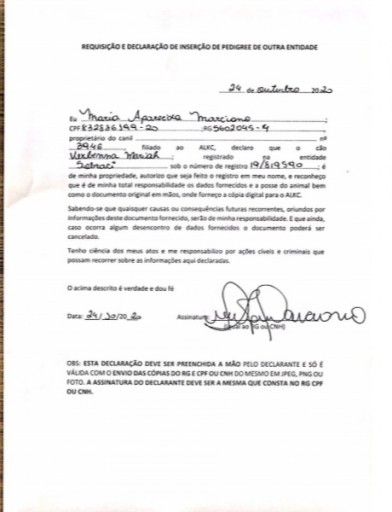 REQUISIÇÃO E DECLARAÇÃO DE INSERÇÃO DE PEDIGREE DE OUTRA ENTIDADE
24 de outubro 2020
Eu Maria Aparecida Marciano;
CPF 832836399-20 RG 5602045-4
proprietário do canil nº
3946 filiado ao ALKC, declara que o cão
Mariah; registrado na entidade
Sobraci sob o número de registro 19/819590; é
de minha propriedade, autorizo que seja feito o registro em meu nome, e reconheço
que é de minha total responsabilidade os dados fornecidos e a posse do animal bem
como o documento original em mãos, onde forneço a cópia digital para o ALKC.
Sabendo-se que quaisquer causas ou consequências futuras recorrentes, oriundos por
informações deste documento fornecido, serão de minha responsabilidade. E que ainda,
caso ocorra algum desencontro de dados fornecidos o documento poderá ser
cancelado.
Tenho ciência dos meus atos e me responsabilizo por ações cíveis e criminais que
possam recorrer sobre as informações aqui declaradas.
O acima descrito é verdade e dou fé
Data: 24/10/2020 Assinatura: Marciano
(Igual ao RG ou CNH)
OBS: ESTA DECLARAÇÃO DEVE SER PREENCHIDA A MÃO PELO DECLARANTE E SÓ É
VÁLIDA COM O ENVIO DAS CÓPIAS DO RG E CPF OU CNH DO MESMO EM JPEG, PNG OU
FOTO. A ASSINATURA DO DECLARANTE DEVE SER A MESMA QUE CONSTA NO RG CPF
OU CNH.